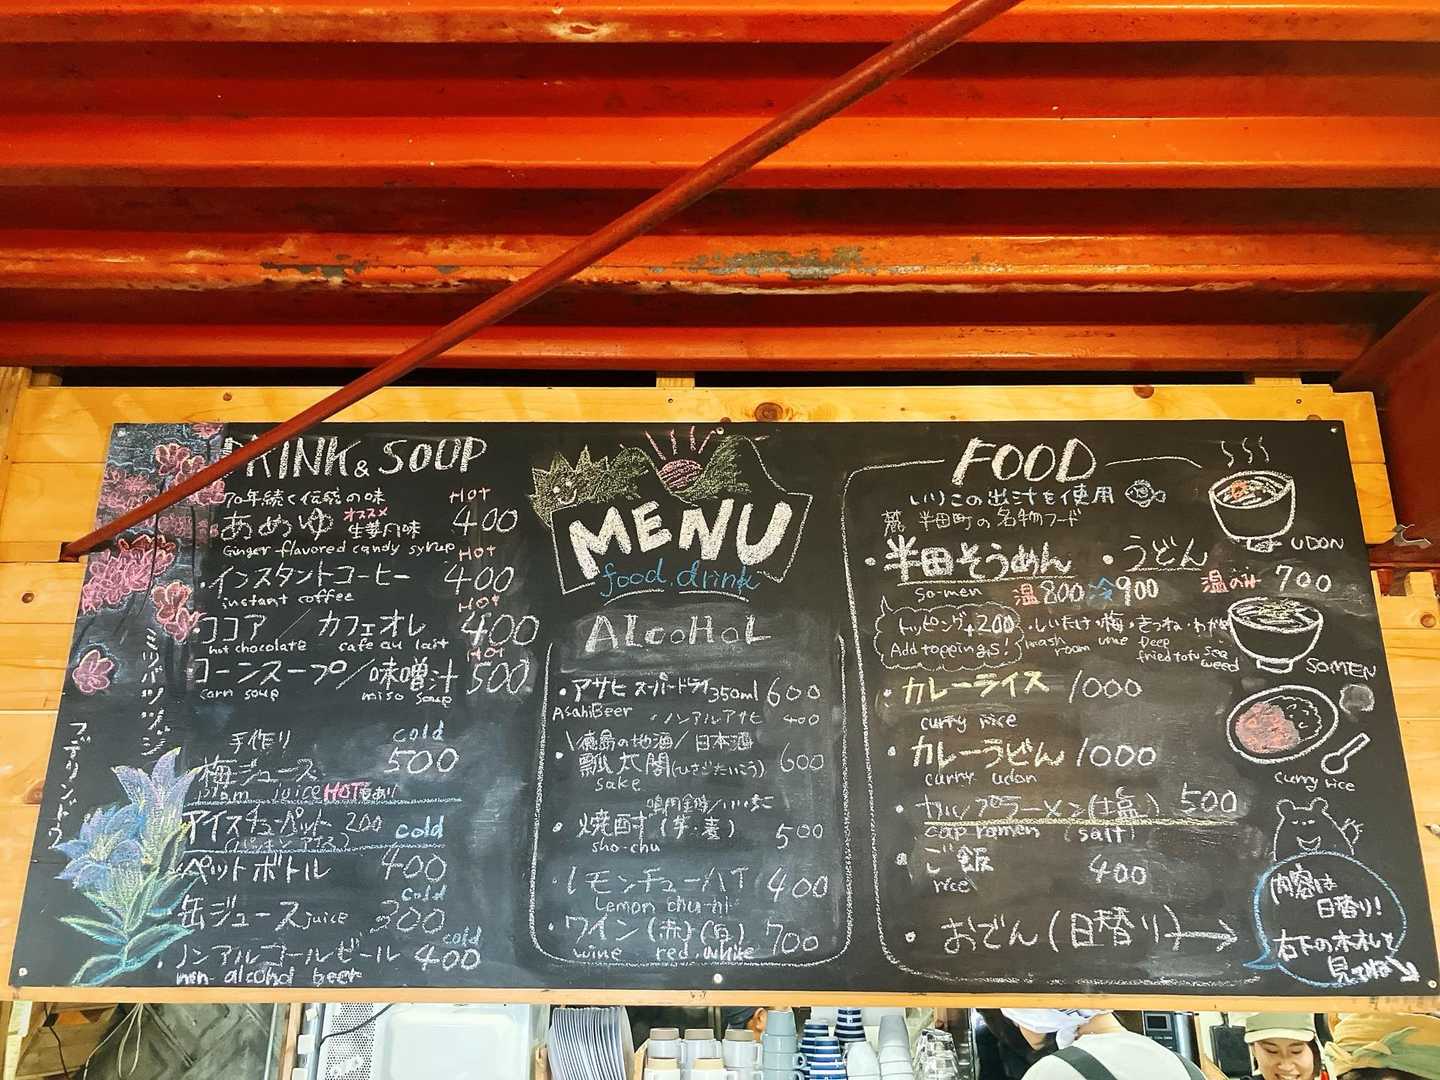 DRINK & SOUP
70年続く伝統の味 HOT
あめゆ オススメ 生姜風味 400
Ginger flavored candy syrup HOT
・インスタントコーヒー 400
instant coffee HOT
・ココア / カフェオレ 400
hot chocolate cafe au lait HOT
コーンスープ/味噌汁 500
corn soup miso soup
手作り cold
梅ジュース 500
plam juice HOTもあり
アイスチューペット 200 cold
ペットボトル 400
cold
缶ジュース juice 300
cold
・ノンアルコールビール 400
non-alcohol beer
ミツバツツジ
フデリンドウ
MENU
food, drink
ALCOHOL
・アサヒ スーパードライ 350ml 600
Asahi Beer ・ノンアルアサヒ 400
\徳島の地酒/ 日本酒
・瓢太閤(ひさごたいこう) 600
sake
鳴門金時/いいちこ
・焼酎(芋・麦) 500
sho-chu
・レモンチューハイ 400
Lemon chu-hi
・ワイン(赤)(白) 700
wine red, white
FOOD
いりこの出汁を使用
半田町の名物フード
・半田そうめん ・うどん
so-men 温800 冷900 温のみ 700
トッピング+200 ・しいたけ・梅・きつね・わかめ
Add toppings! mash room ume Deep fried tofu sea weed
・カレーライス 1000
curry rice
・カレーうどん 1000
curry udon
・カップラーメン(塩) 500
cap ramen (salt)
・ご飯 400
rice
・おでん(日替り)→
UDON
SOMEN
curry rice
内容は
日替り!
右下の木札を
見てね